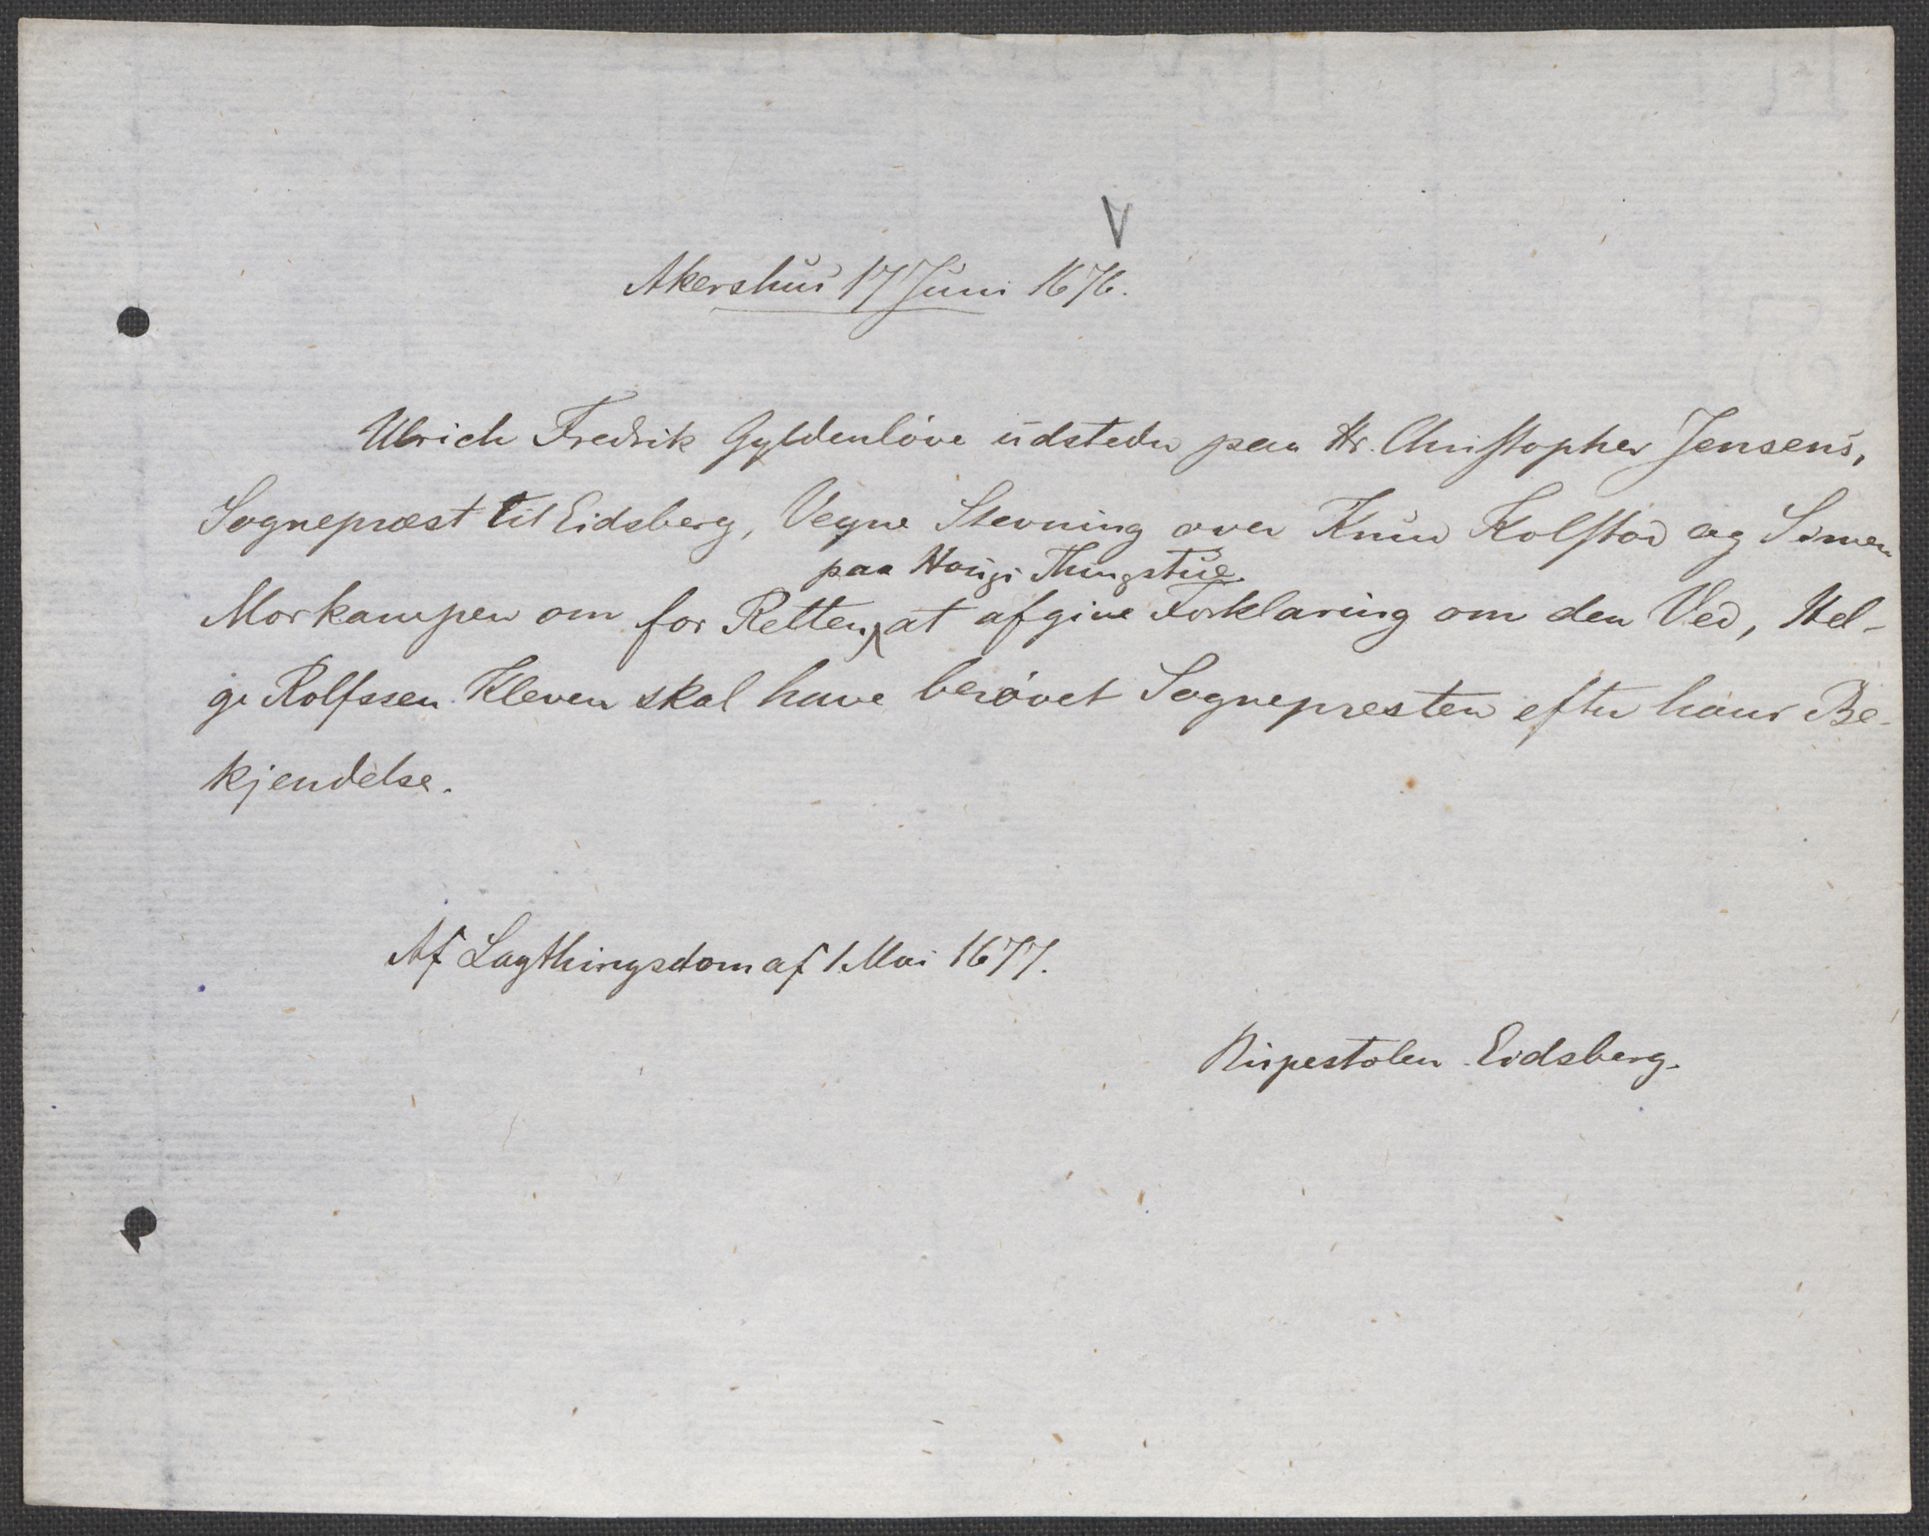 V
Akershus 17 Juni 1676.
Ulrich Fredrik Gyldenløve udsteder paa Hr. Christopher Jensens,
Sognepræst til Eidsberg, Vegne Stevning over Knud Kolstad og Simen
paa Haugs Thingstue.
Morkampen om for Retten, at afgive Forklaring om den Ved, Hel-
ge Rolfssen Kleven skal have berøvet Sognepresten efter hans Be-
kjendelse.
Af Lagthingsdom af 1 Mai 1677.
Eidsberg.